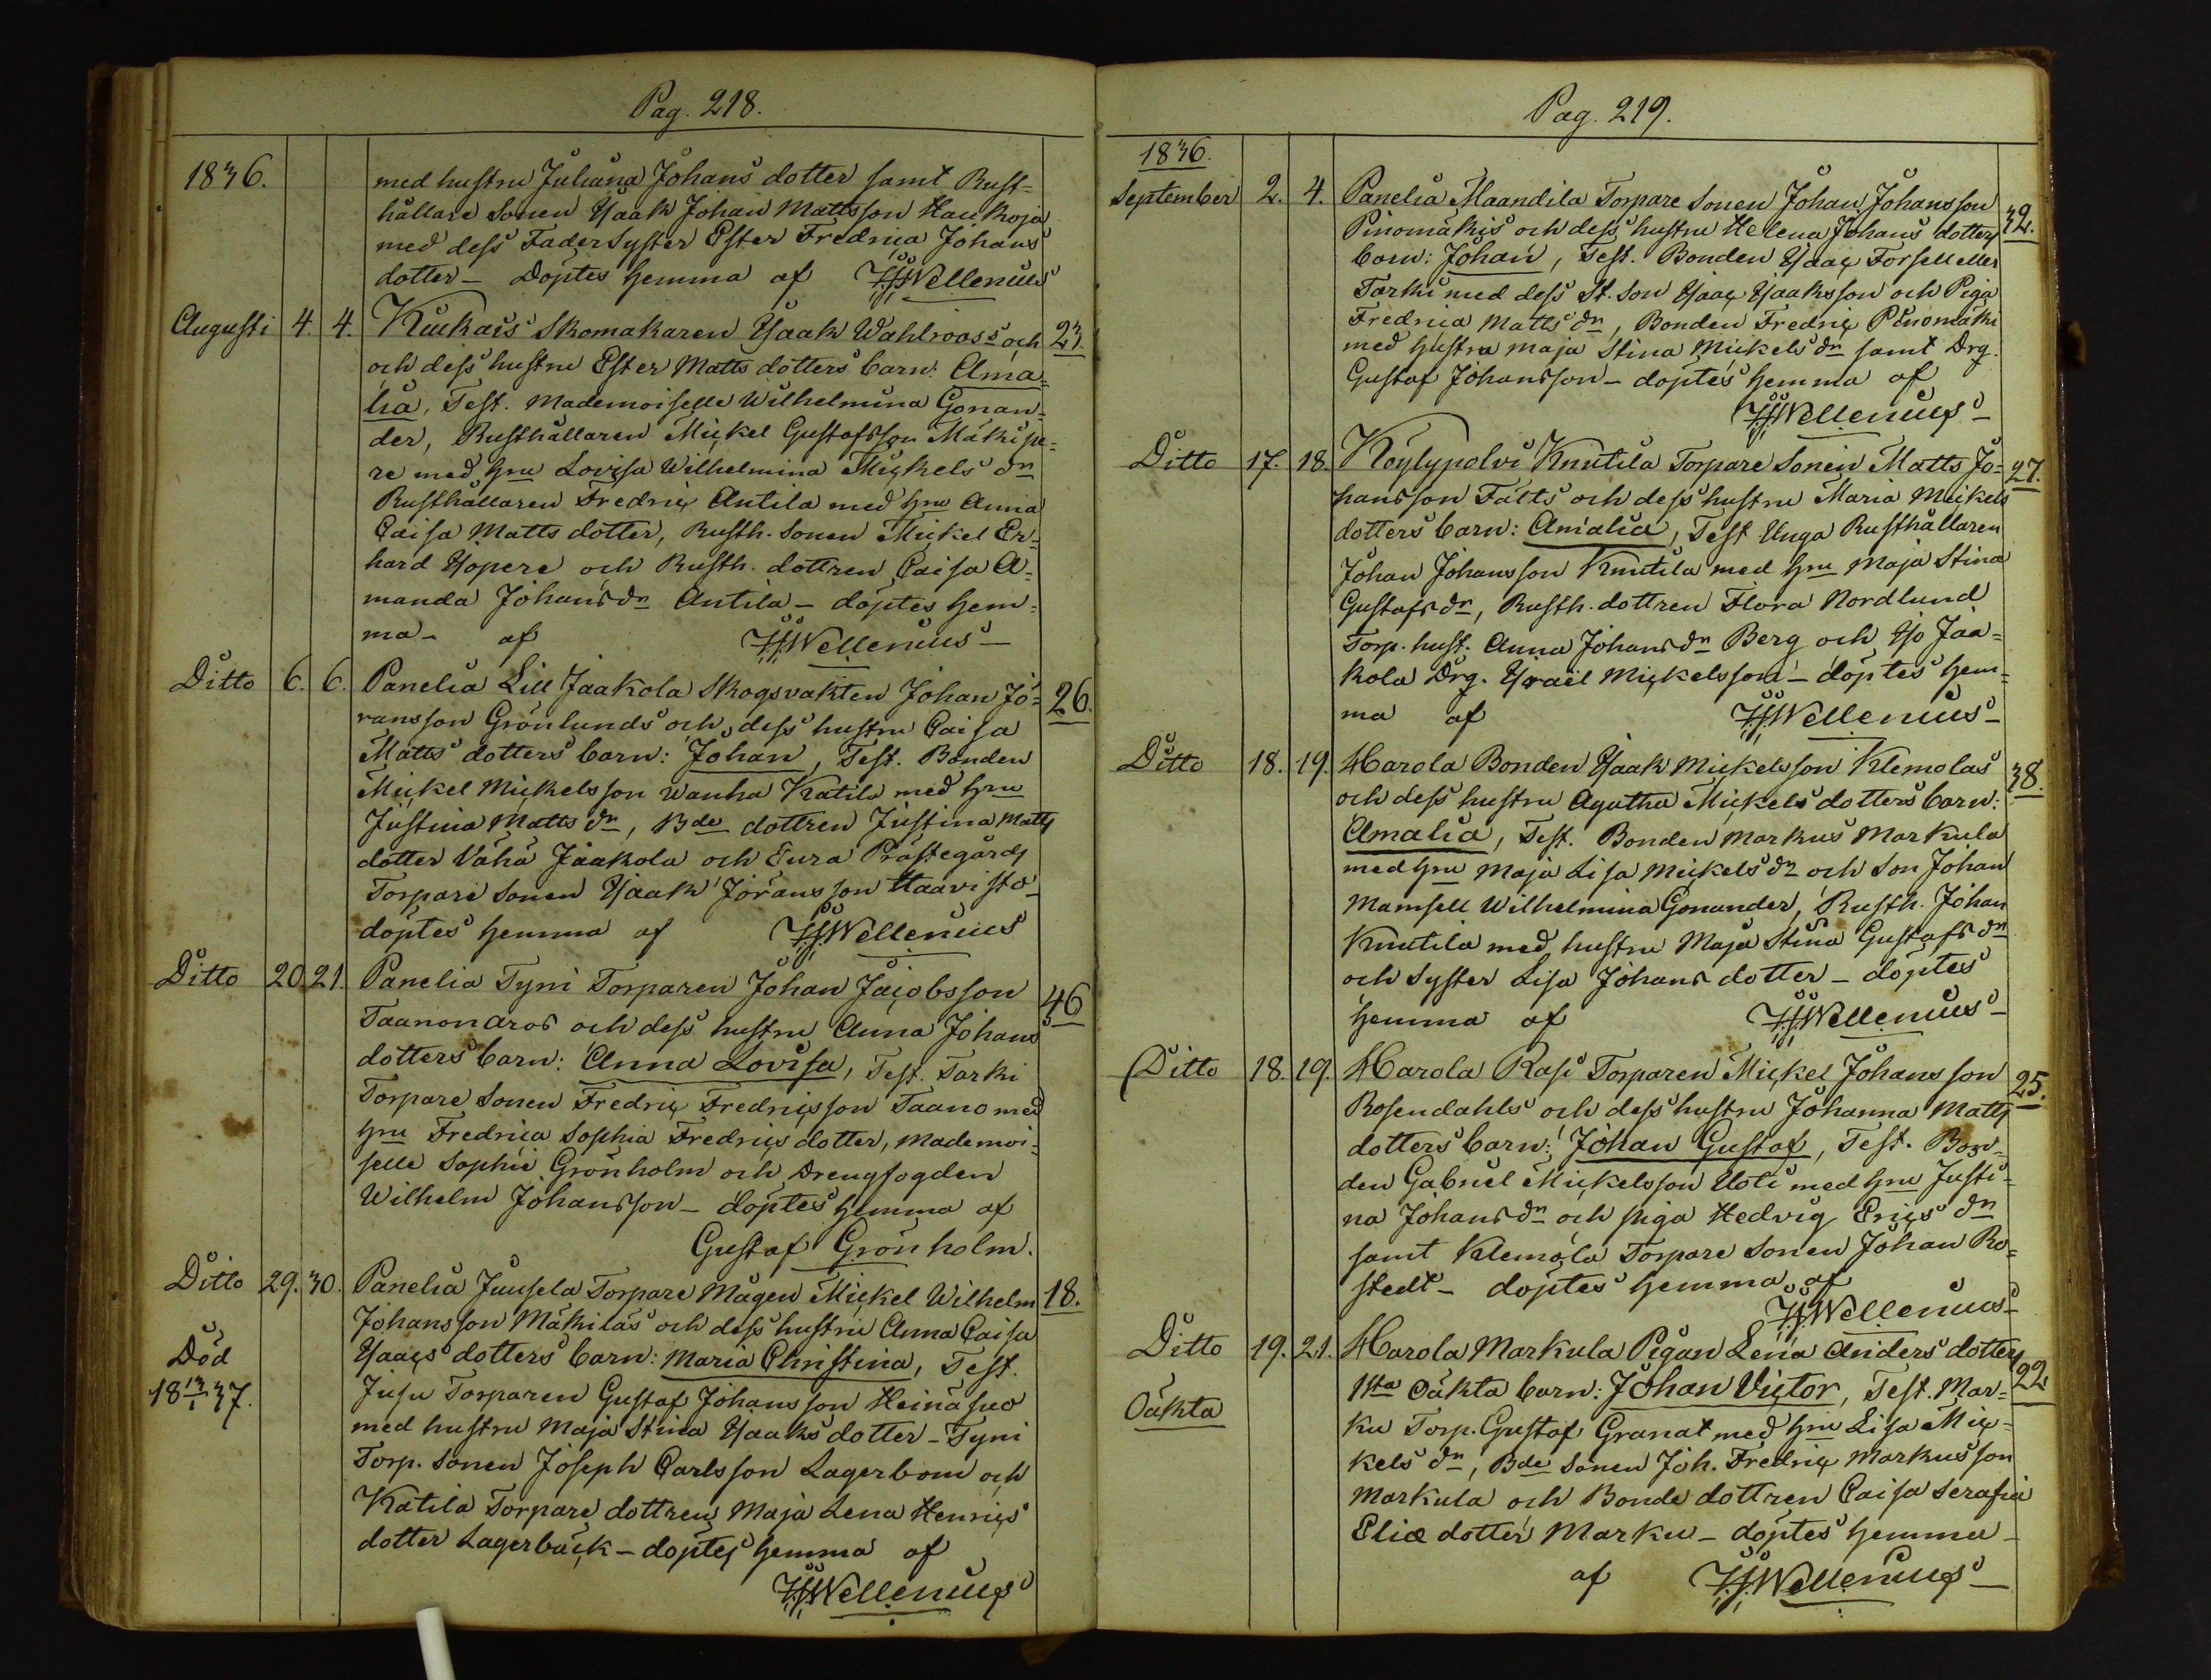 Pag. 218.
1836.
med hustru Juliana Johans dotter samt Rust=
hållare Sonen Isaak Johan Mattsson Haukoja
med dess Fader Syster Ester Fredrica Johans
dotter – Döptes hemma af Wellenius
Augusti 4. 4. Kiukais Skomakaren Isaak Wahlrooss och 23.
och dess hustru Ester Matts dotters barn: Ama=
lia, Test. Mademoiselle Wilhelmina Gonan=
der, Rusthållaren Mickel Gustafsson Mäkipe=
re med hru Lovisa Wilhelmina Mickels dn
Rusthållaren Fredric Antila med hru Anna
Caisa Matts dotter, Rusth. Sonen Mickel Er=
hard Isopere och Rusth. dottren Caisa A=
manda Johans dn Antila – döptes hem=
ma – af Wellenius –
Ditto 6. 6. Panelia Lill Jaakola Skogsvakten Johan Jö= 26.
ransson Grönlunds och dess hustru Caisa
Matts dotters barn: Johan, Test. Bonden
Mickel Mickelsson Wanha Katila med hru
Justina Matts dn, Bde dottren Justina Matts
dotter Vähä Jaakola och Eura Prästegårds
Torpare Sonen Isaak Jöransson Haavisto –
döptes hemma af Wellenius
Ditto 20. 21. Panelia Tyni Torparen Johan Jacobsson 46
Taanonaros och dess hustru Anna Johans
dotters barn: Anna Lovisa, Test. Tarki
Torpare Sonen Fredric Fredricsson Taano med
hru Fredrica Sophia Fredrics dotter, Mademoi=
selle Sophie Grönholm och Drengfogden
Wilhelm Johansson – döptes hemma af
Gustaf Grönholm.
Ditto 29. 30. Panelia Juusela Torpare Mågen Mickel Wilhelm 18.
Johansson Mäkiläs och dess hustru Anna Caisa
Isaacs dotters barn: Maria Christina, Test.
Död
18 13/1 37.
Jusu Torparen Gustaf Johansson Heinäsuo
med hustru Maja Stina Isaaks dotter – Tyni
Torp. Sonen Joseph Carlsson Lagerbom och
Katila Torpare dottren Maja Lena Henrics
dotter Lagerbäck – döptes hemma af
Wellenius
Pag. 219.
1836.
September 2. 4. Panelia Maandila Torpare Sonen Johan Johansson 32.
Pinomäkis och dess hustru Helena Johans dotters
barn: Johan, Test. Bonden Isaac Forsell eller
Tarki med dess St. Son Isaac Isaaksson och Piga
Fredrica Matts dn, Bonden Fredric Pinomäki
med hustru Maja Stina Mickels dn samt Drg.
Gustaf Johansson – döptes hemma af
Wellenius –
Ditto 17. 18. Köylypolvi Knutila Torpare Sonen Matts Jo= 27.
hansson Fälts och dess hustru Maria Mickels
dotters barn: Amalia, Test Unga Rusthållaren
Johan Johansson Knutila med hru Maja Stina
Gustafs dn, Rusth. dottren Flora Nordlund
Torp. hust. Anna Johans dn Berg och Iso Jaa=
kola Drg. Israël Mickelsson – döptes hem=
ma af Wellenius –
Ditto 18. 19. Harola Bonden Isaak Mickelsson Klemolas 38.
och dess hustru Agatha Mickels dotters barn:
Amalia, Test. Bonden Markus Markula
med hru Maja Lisa Mickels dn och Son Johan
Mamsell Wilhelmina Gonander, Rusth. Johan
Knutila med hustru Maja Stina Gustafs dn
och Syster Lisa Johans dotter – döptes
hemma af Wellenius –
Ditto 18. 19. Harola Rasi Torparen Mickel Johansson 25.
Rosendahls och dess hustru Johanna Matts
dotters barn: Johan Gustaf, Test. Bon=
den Gabriel Mickelsson Uoti med hru Justi=
na Johans dn och piga Hedvig Erics dn
samt Klemola Torpare Sonen Johan Ro=
stedt – döptes hemma af
Wellenius –
Ditto 19. 21. Harola Markula Pigan Lena Anders dotters 22
Oäkta
1sta Oäkta barn: Johan Victor, Test. Mar=
ku Torp. Gustaf Granat med hru Lisa Mic=
kels dn, Bde Sonen Joh. Fredric Markusson
Markula och Bonde dottren Caisa Serafia
Eliæ dotter Marku – döptes hemma –
af Wellenius –